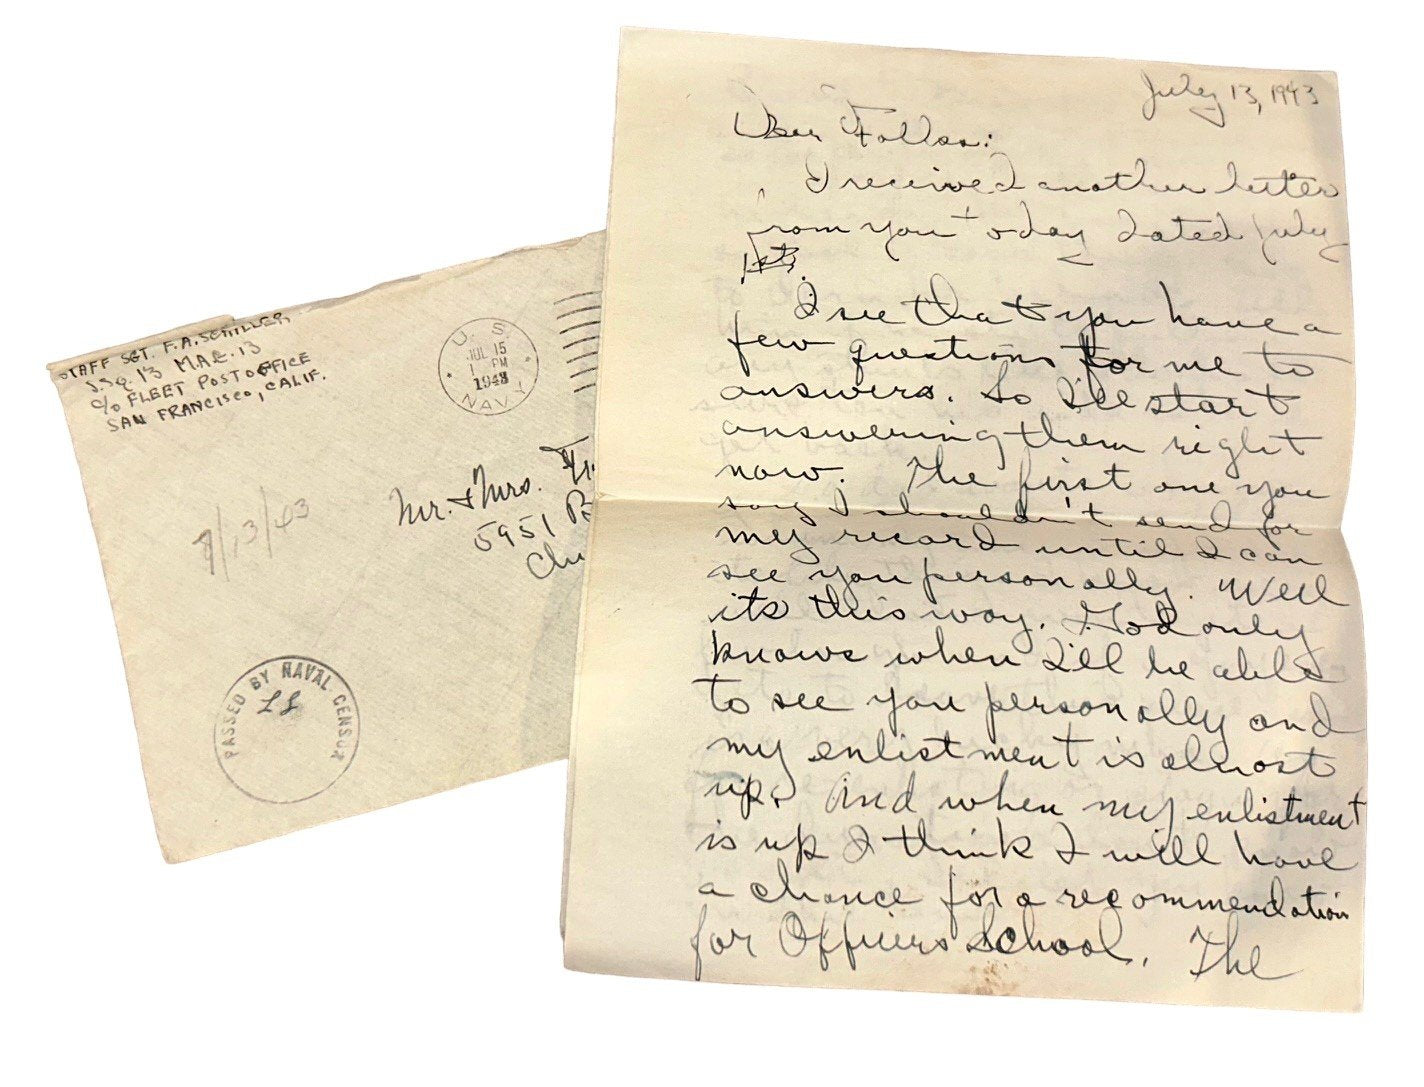 STAFF SGT. F.A. SCHILLER
SSQ 13 M.A.G. 13
c/o FLEET POST OFFICE
SAN FRANCISCO, CALIF.
U. S.
JUL 15
1 PM
1943
NAVY
Mr. & Mrs.
5951 B
Chi
7/13/43
PASSED BY NAVAL CENSOR
July 13, 1943
Dear Folks:
I received another letter
from you today dated July
1st.
I see that you have a
few questions for me to
answers. So I'll start
answering them right
now. The first one you
say I shouldn't send for
my record until I can
see you personally. Well
its this way. God only
knows when I'll be able
to see you personally and
my enlistment is almost
up. And when my enlistment
is up I think I will have
a chance for a recommendation
for Officers School. The